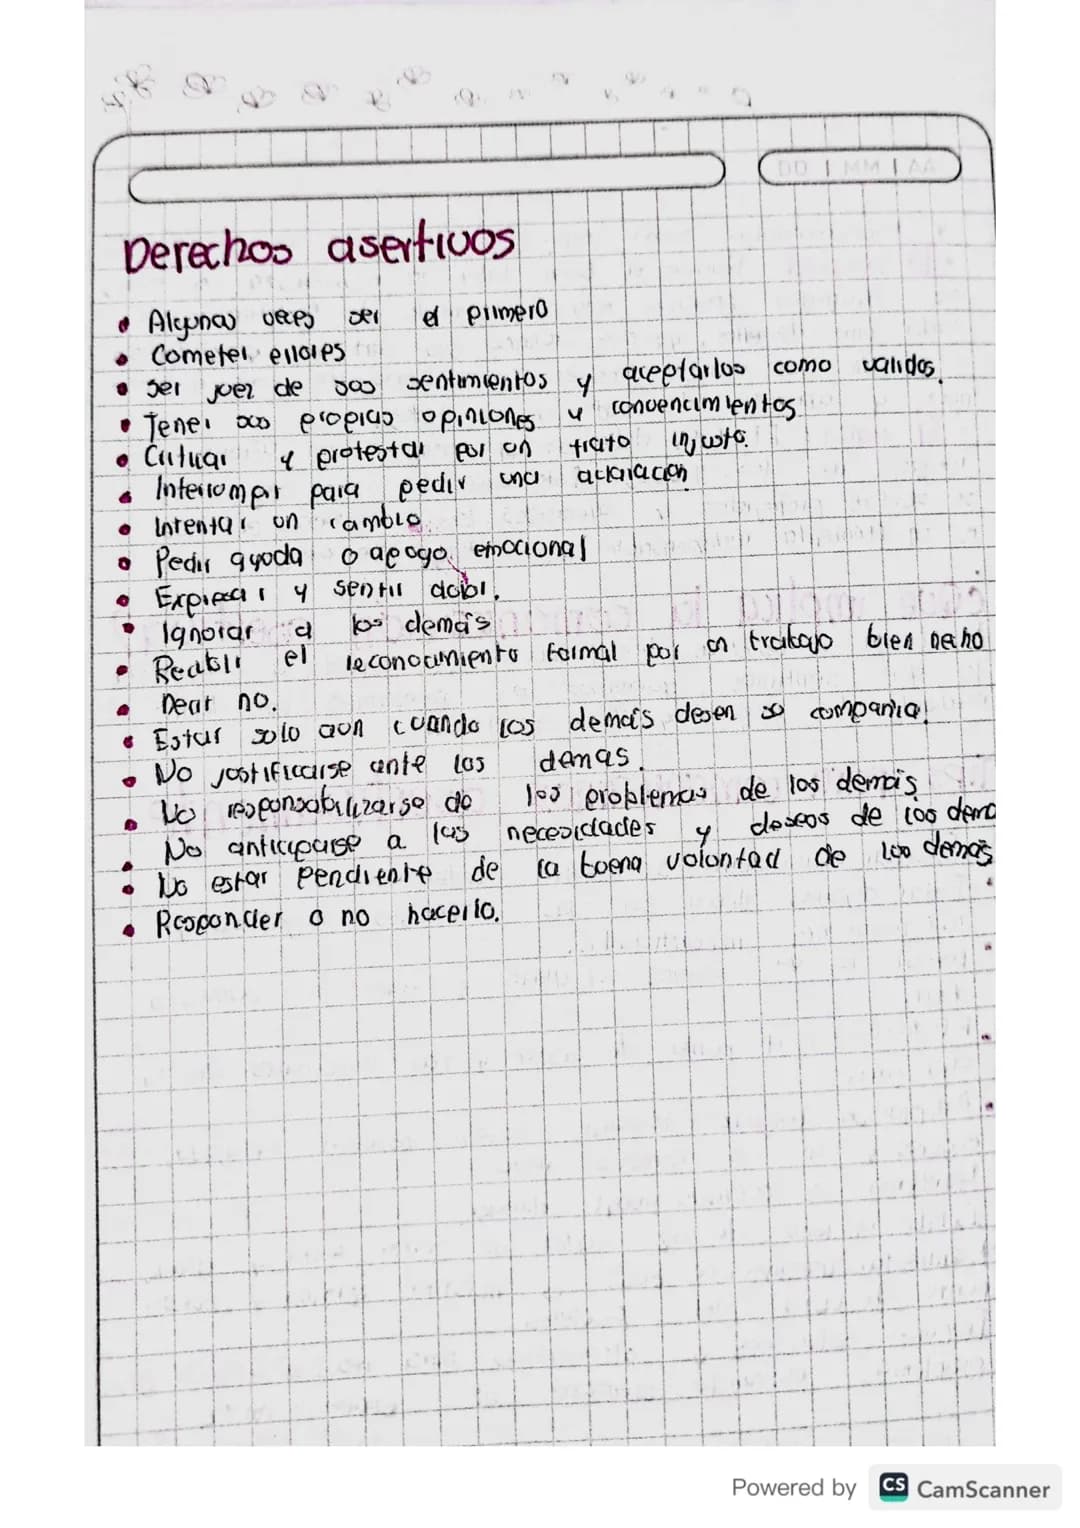 DD | MM | AA
Derechos asertivos
• Algunas veces ser el primero
• Cometer errores
• Ser juez de sus sentimientos y aceptarlos como validos.
• Tener sus propias opiniones y convencimientos
• Criticar y protestar por un trato injusto.
• Interrumpir para pedir una aclaración
• Intentar un cambio
• Pedir ayuda o apoyo emocional
• Expresar y sentir dolor.
• Ignorar a los demás
• Recibir el reconocimiento formal por un trabajo bien hecho
• Decir no.
• Estar solo aun cuando los demás deseen su compañia.
• No justificarse ante los demas.
• No responsabilizarse de los problemas de los demás
• No anticiparse a las necesidades y deseos de los dema
• No estar pendiente de la buena voluntad de los demás
• Responder o no hacerlo.
Powered by CS CamScanner